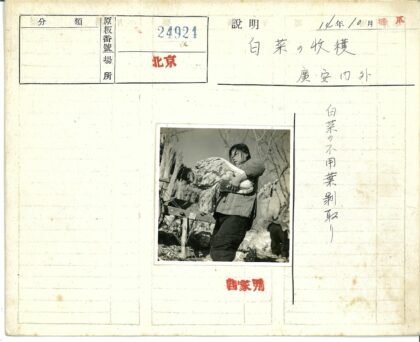 分類
原板番號
24921
場所
北京
説明
14年10月
白菜の收穫
廣安門外
白菜の不用葉剥取り